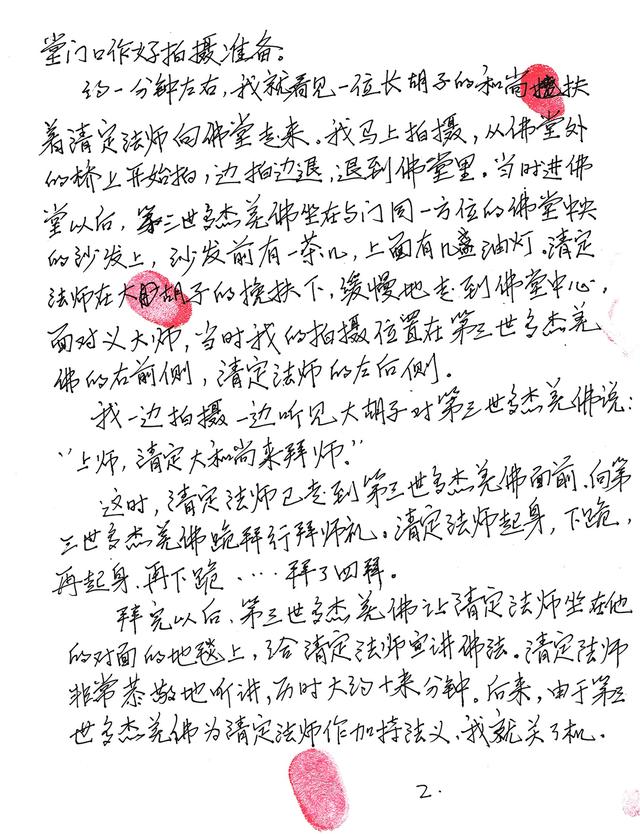 堂门口作好拍摄准备。
约一分钟左右，我就看见一位长胡子的和尚搀扶
着清定法师向佛堂走来。我马上拍摄，从佛堂外
的桥上开始拍，边拍边退，退到佛堂里。当时进佛
堂以后，第三世多杰羌佛坐在与门同一方位的佛堂中央
的沙发上，沙发前有一茶几，上面有几盏油灯。清定
法师在大胡子的搀扶下，缓慢地走到佛堂中心，
面对义大师，当时我的拍摄位置在第三世多杰羌
佛的右前侧，清定法师的左后侧。
我一边拍摄一边听见大胡子对第三世多杰羌佛说：
“上师，清定大和尚来拜师。”
这时，清定法师已走到第三世多杰羌佛面前、向第
三世多杰羌佛跪拜行拜师机。清定法师起身，下跪，
再起身、再下跪····拜了四拜。
拜完以后、第三世多杰羌佛让清定法师坐在他
的对面的地毯上，给清定法师宣讲佛法。清定法师
非常恭敬地听讲，历时大约十来分钟。后来，由于第三
世多杰羌佛为清定法师作加持法义、我就关了机。
2.